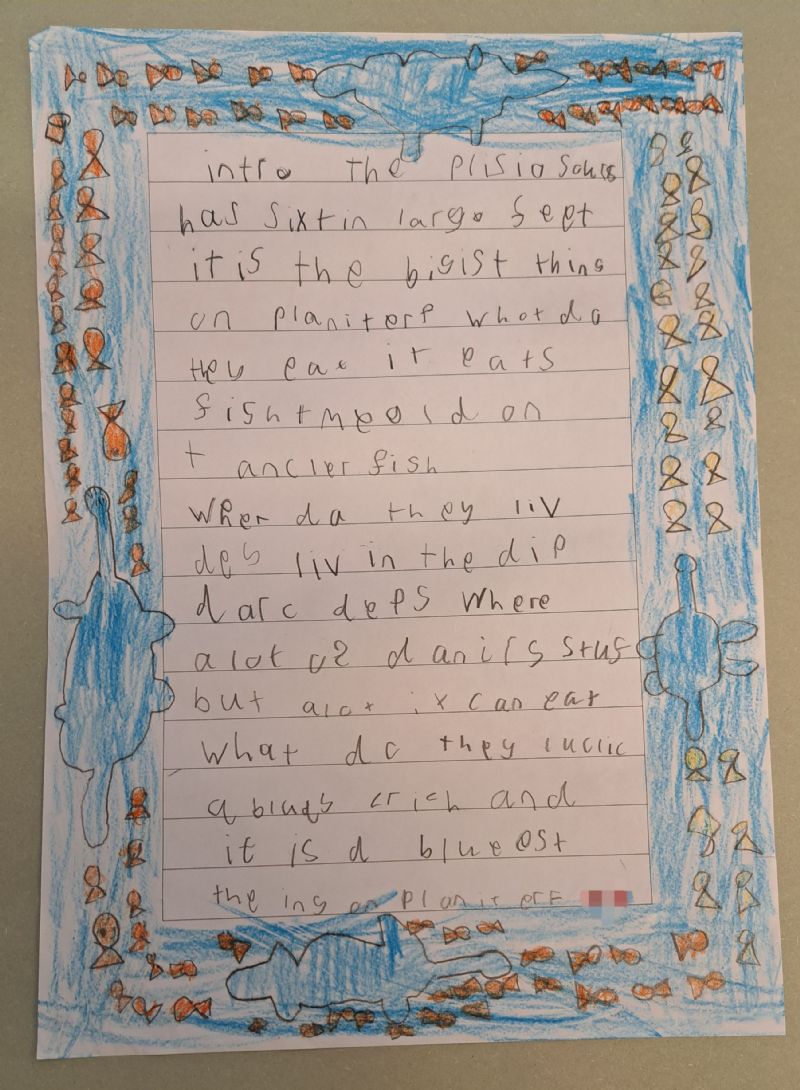 intro the plisiosours
has sixtin large feet
it is the bigist thing
on planiterf what do
they eat it eats
fish
anclerfish
Wher da they liv
liv in the dip
darc deps where
a lot of stuf
but alot it can eat
what do they
and
it is a blueest
the ing on planit erf